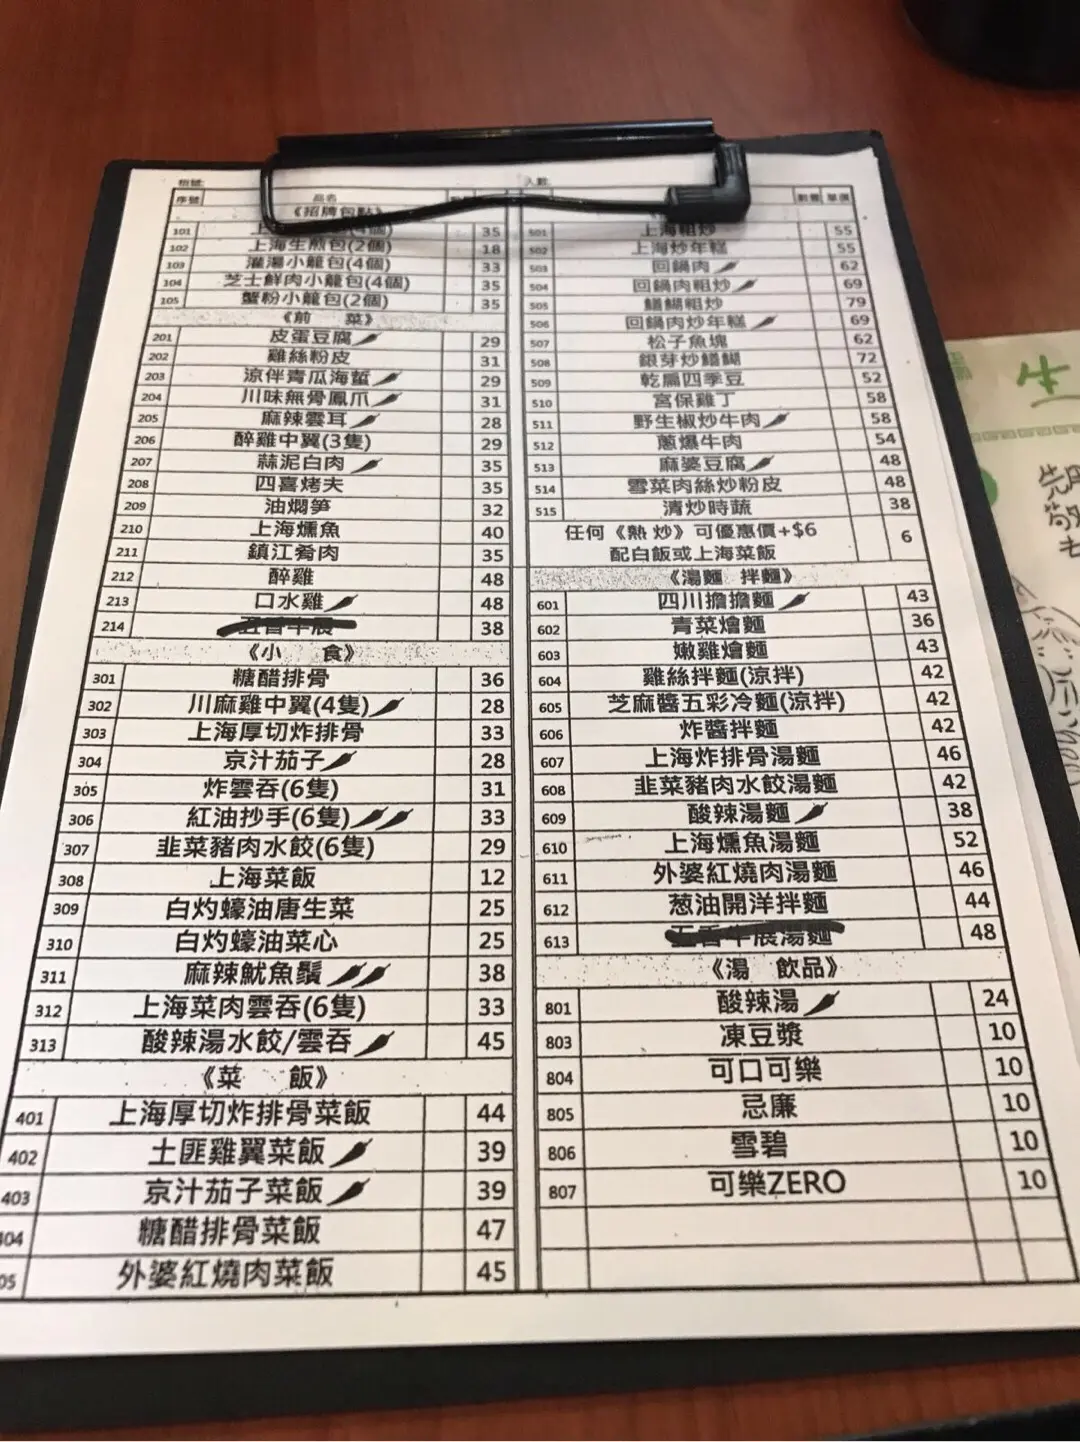 枱號:
序號 品名
《招牌包點》
101 上 (4個) 35
102 上海生煎包(2個) 18
103 灌湯小籠包(4個) 33
104 芝士鮮肉小籠包(4個) 35
105 蟹粉小籠包(2個) 35
《前 菜》
201 皮蛋豆腐 29
202 雞絲粉皮 31
203 涼伴青瓜海蜇 29
204 川味無骨鳳爪 31
205 麻辣雲耳 28
206 醉雞中翼(3隻) 29
207 蒜泥白肉 35
208 四喜烤夫 35
209 油燜筍 32
210 上海燻魚 40
211 鎮江肴肉 35
212 醉雞 48
213 口水雞 48
214 五香牛展 38
《小 食》
301 糖醋排骨 36
302 川麻雞中翼(4隻) 28
303 上海厚切炸排骨 33
304 京汁茄子 28
305 炸雲吞(6隻) 31
306 紅油抄手(6隻) 33
307 韭菜豬肉水餃(6隻) 29
308 上海菜飯 12
309 白灼蠔油唐生菜 25
310 白灼蠔油菜心 25
311 麻辣魷魚鬚 38
312 上海菜肉雲吞(6隻) 33
313 酸辣湯水餃/雲吞 45
《菜 飯》
401 上海厚切炸排骨菜飯 44
402 土匪雞翼菜飯 39
403 京汁茄子菜飯 39
404 糖醋排骨菜飯 47
05 外婆紅燒肉菜飯 45
人數:
數量 單價
501 上海粗炒 55
502 上海炒年糕 55
503 回鍋肉 62
504 回鍋肉粗炒 69
505 鱔糊粗炒 79
506 回鍋肉炒年糕 69
507 松子魚塊 62
508 銀芽炒鱔糊 72
509 乾扁四季豆 52
510 宮保雞丁 58
511 野生椒炒牛肉 58
512 蔥爆牛肉 54
513 麻婆豆腐 48
514 雪菜肉絲炒粉皮 48
515 清炒時蔬 38
任何《熱 炒》可優惠價+$6
配白飯或上海菜飯 6
《湯麵 拌麵》
601 四川擔擔麵 43
602 青菜燴麵 36
603 嫩雞燴麵 43
604 雞絲拌麵(涼拌) 42
605 芝麻醬五彩冷麵(涼拌) 42
606 炸醬拌麵 42
607 上海炸排骨湯麵 46
608 韭菜豬肉水餃湯麵 42
609 酸辣湯麵 38
610 上海燻魚湯麵 52
611 外婆紅燒肉湯麵 46
612 葱油開洋拌麵 44
613 五香牛展湯麵 48
《湯 飲品》
801 酸辣湯 24
803 凍豆漿 10
804 可口可樂 10
805 忌廉 10
806 雪碧 10
807 可樂ZERO 10
生